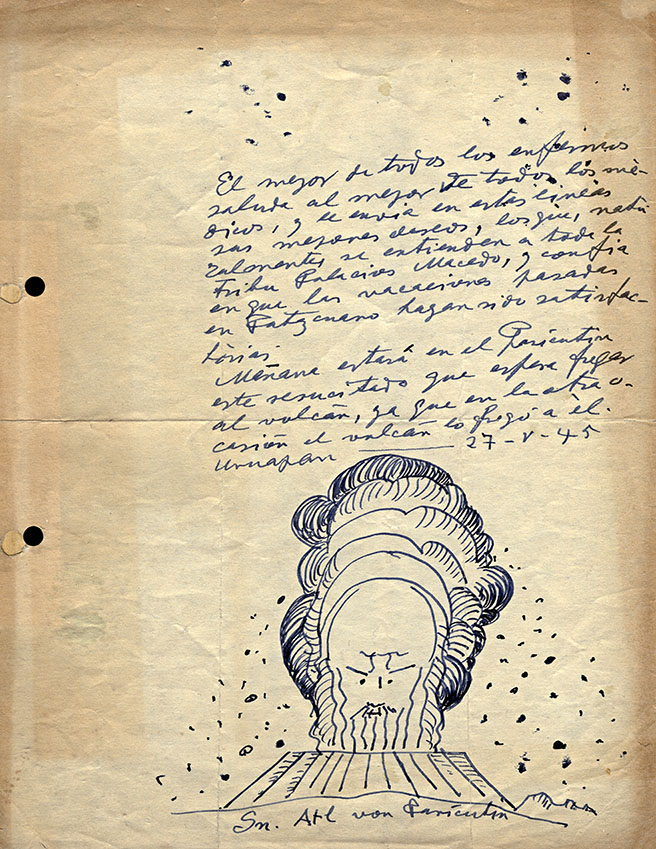 El mejor de todos los enfermos
saluda al mejor de todos los mé-
dicos, y le envia en estas lineas
sus mejores deseos, los que, natu
ralmente, se entienden a toda la
Tribu Palacios Macedo, y confia
en que las vacaciones pasadas
en Patzcuaro hayan sido satisfac-
torias.
Mañana estará en el Paricutin
este resucitado que espera fregar
al volcán, ya que en la otra o-
casión el volcán lo fregó a èl.
Uruapan 27-V-45
Sn. Atl von Paricutin